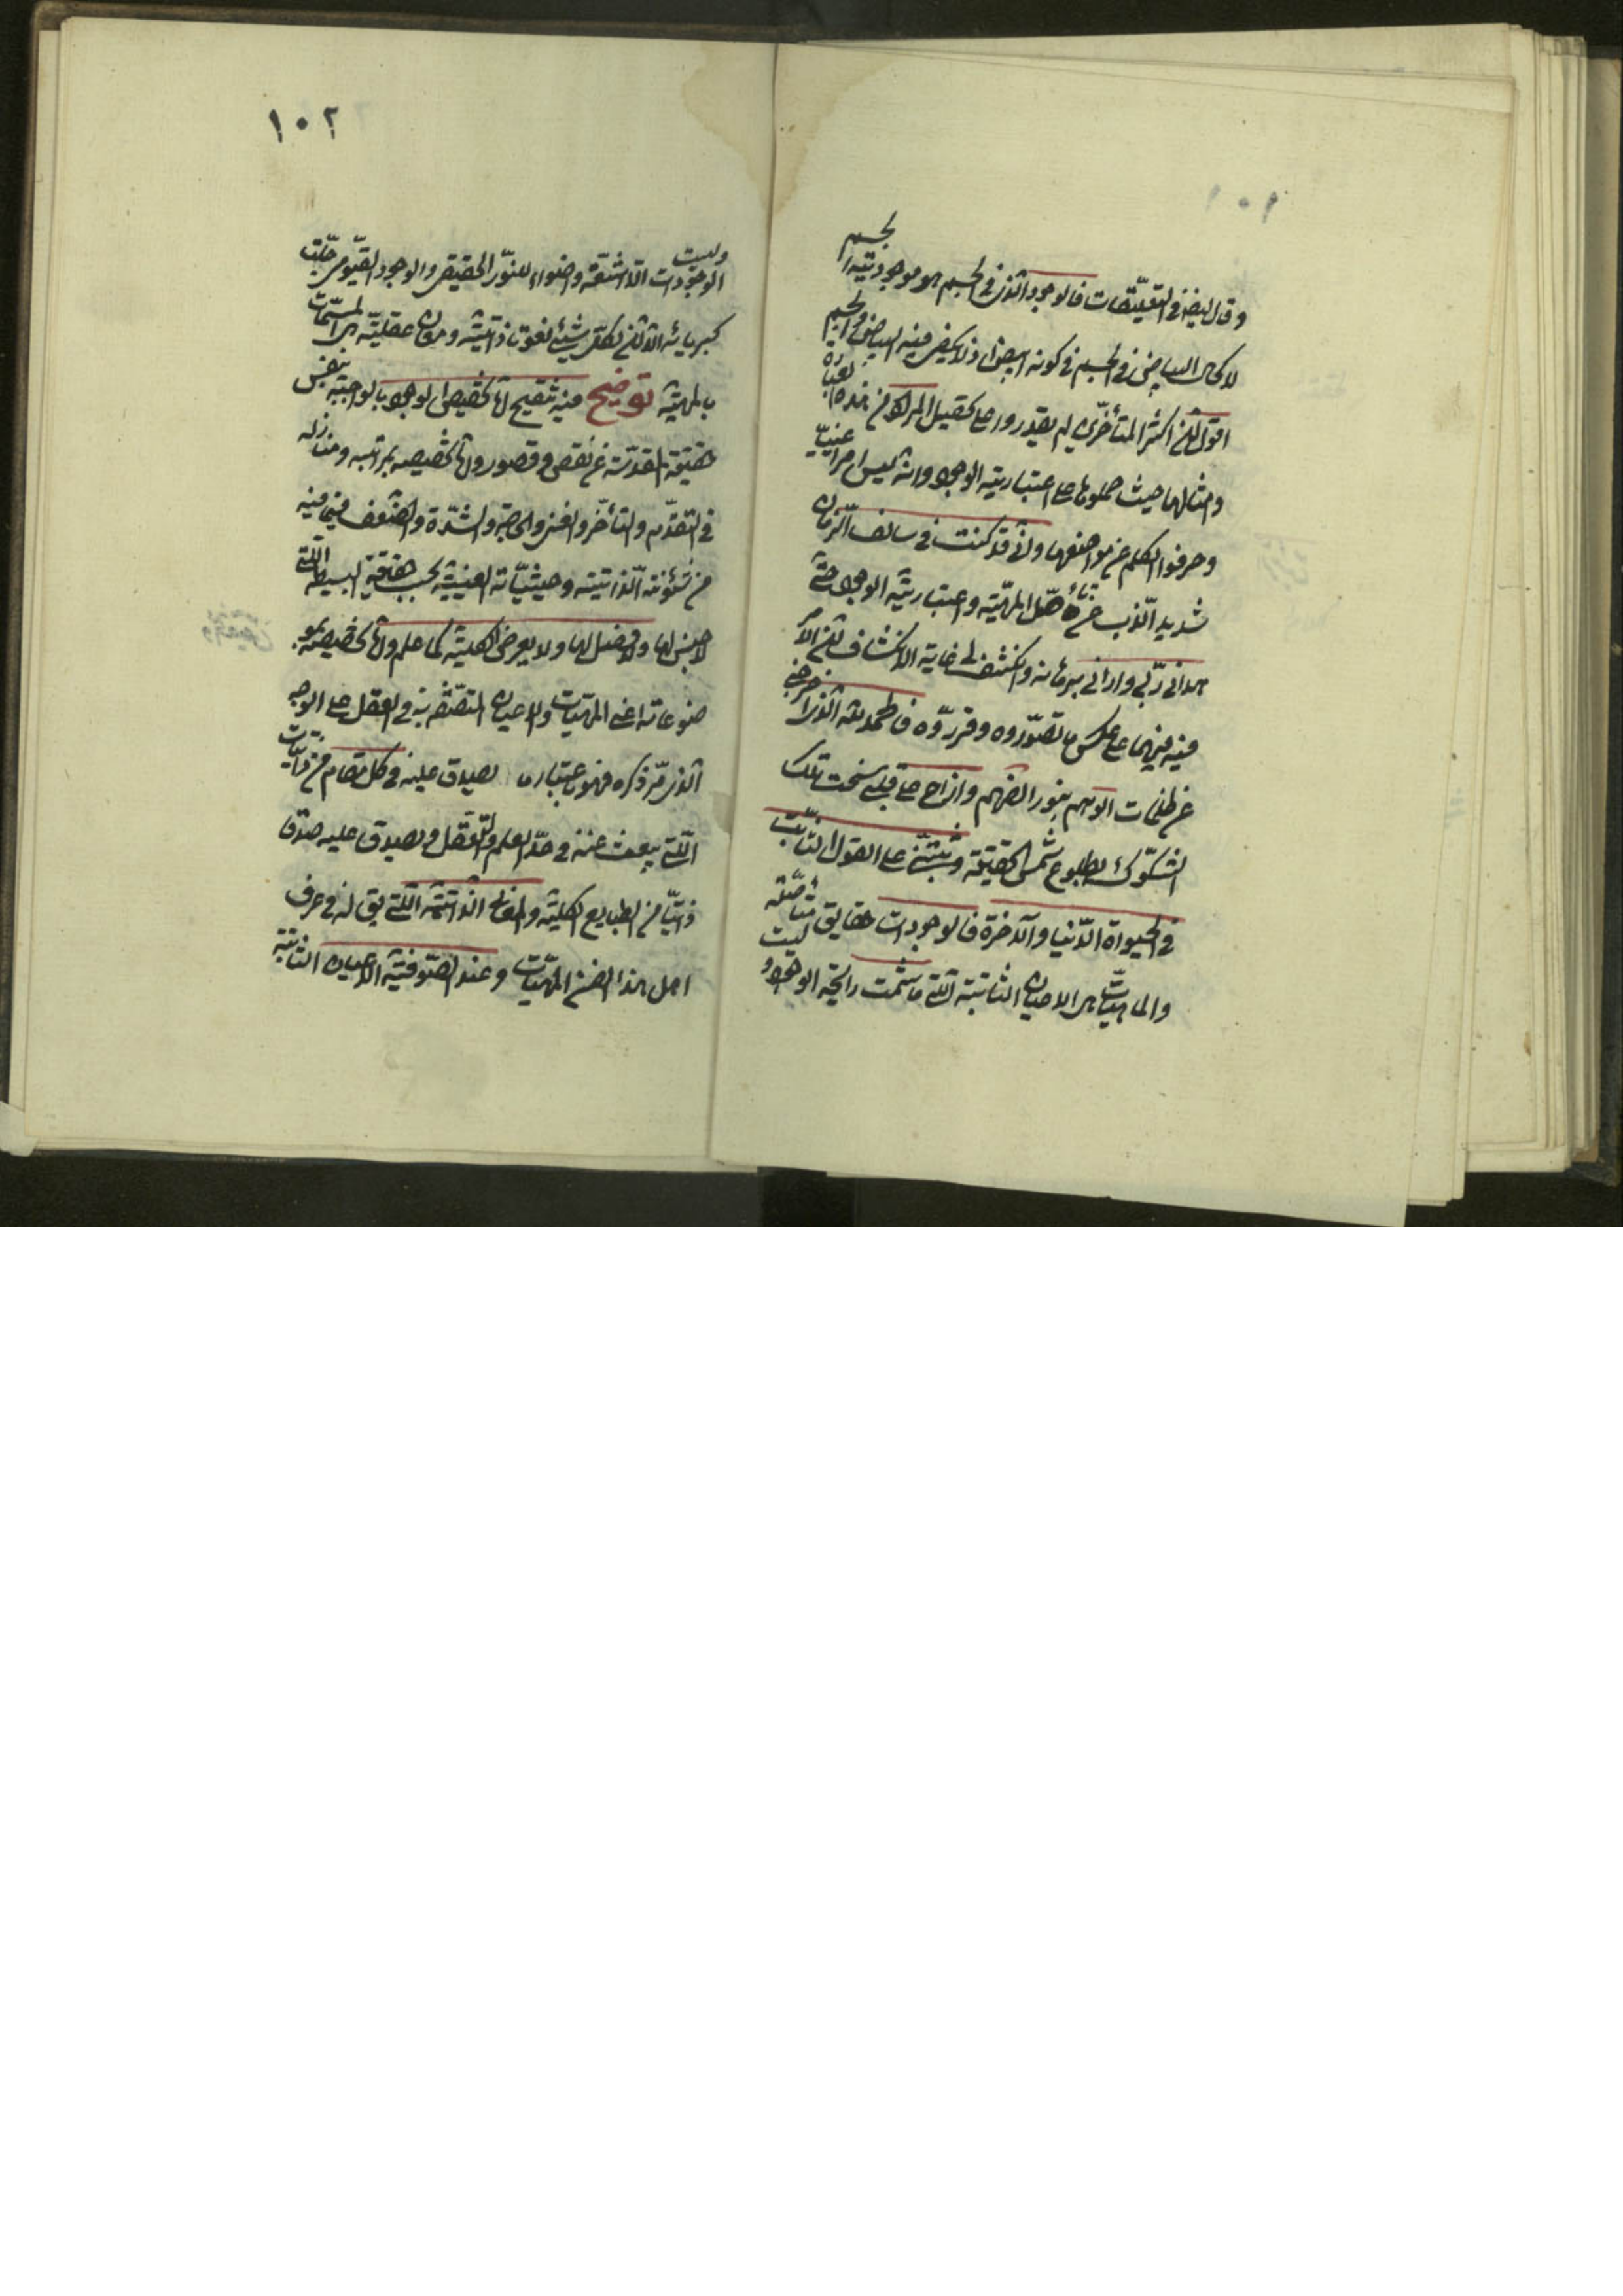 ١٠١
وقال ايضا في التعليقات فالوجود الذى في الجسم هو موجودية الجسم
لا كحال البياض في الجسم في كونه ابيض اذ لا يكفى فيه البياض والجسم
اقول ان اكثر المتأخرين لم يقدروا على تحصيل المراد من هذه العبارة
وامثالها حيث حملوها على اعتبارية الوجود وانه ليس امرا عينيا
وحرفوا الكلم عن مواضعها وانى قد كنت في سالف الزمان
شديد الذب عن تأصل الماهية واعتبارية الوجود حتى
هدانى ربى وارانى برهانه وانكشف لى غاية الانكشاف ان الامر
فيه فيهما على عكس ما تصوروه وقرروه فالحمد لله الذى اخرجنى
عن ظلمات الوهم بنور الفهم وازاح عن قلبى سحب تلك
الشكوك بطلوع شمس الحقيقة وثبتنى على القول الثابت
في الحيوة الدنيا والآخرة فالوجودات حقايق متأصلة
والماهيات هى الاعيان الثابتة التى ما شمت رايحة الوجود
١٠٢
وليست
الوجودات الا اشعة واضواء للنور الحقيقى والوجود القيومى جلت
كبريائه الا ان لكل شيئ نعوتا ذاتية ومعان عقلية هى المسمات
بالمهية توضيح فيه تنقيح اما تخصيص الوجود بالواجبية بنفس
حقيقة المقدسة عن نقص وقصور واما تخصيصه بمراتبه ومنازله
في التقدم والتأخر والغنى والحاجة والشدة والضعف فبما فيه
من شئونه الذاتية وحيثياته العينية بحسب حقيقته البسيطة التى
لا جنس لها ولا فصل لها ولا يعرض الكلية كما علم واما تخصيصه بمو
ضوعاته اعنى المهيات والاعيان المتصفة به في العقل على الوجه
الذى مر ذكره فهو باعتبار ما يصدق عليه في كل مقام من ذاتيات
التى ينبعث عنه في حد العلم والتعقل ويصدق عليه صدقا
ذاتيا من الطبايع الكلية والمعانى الذاتية التى يق لها في عرف
اهل هذا الفن المهيات وعند الصوفية الاعيان الثابتة